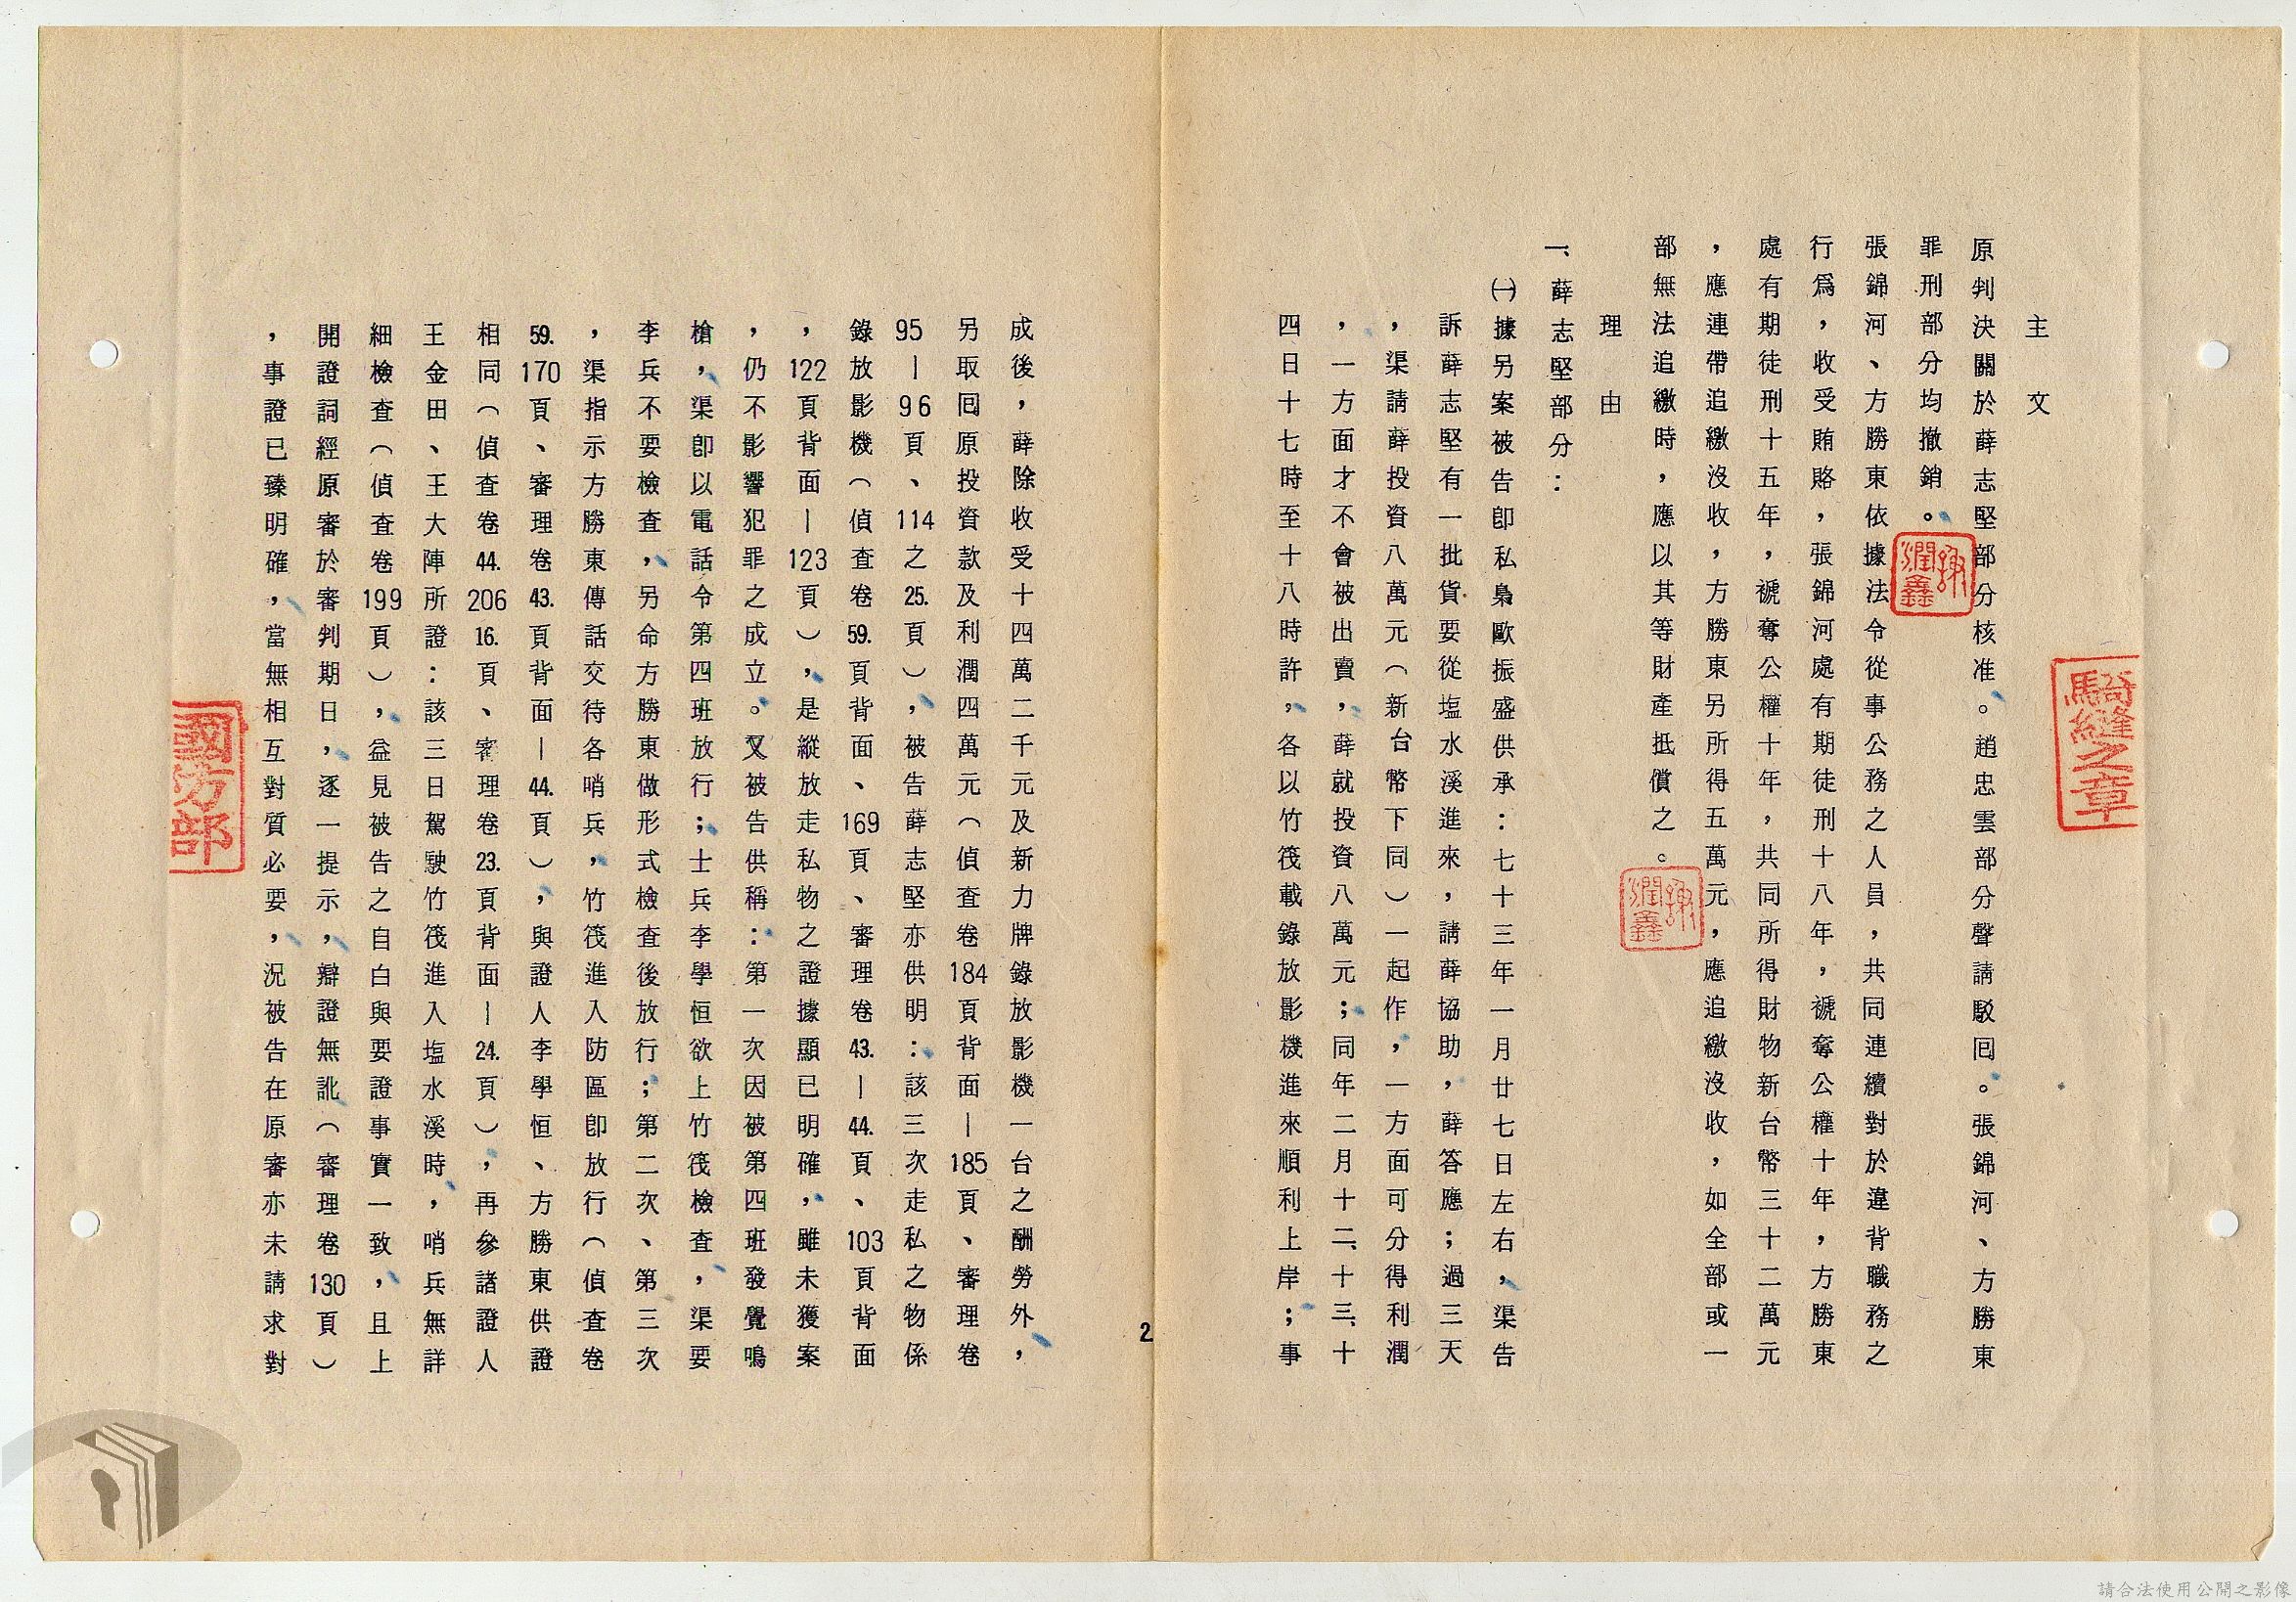 主文
原判決關於薛志堅部分核准。趙忠雲部分聲請駁回。張錦河、方勝東
罪刑部分均撤銷。
張錦河、方勝東依據法令從事公務之人員，共同連續對於違背職務之
行為，收受賄賂，張錦河處有期徒刑十八年，褫奪公權十年，方勝東
處有期徒刑十五年，褫奪公權十年，共同所得財物新台幣三十二萬元
，應連帶追繳沒收，方勝東另所得五萬元，應追繳沒收，如全部或一
部無法追繳時，應以其等財產抵償之。
理由
一、薛志堅部分：
㈠據另案被告即私梟歐振盛供承：七十三年一月廿七日左右，渠告
訴薛志堅有一批貨要從塩水溪進來，請薛協助，薛答應；過三天
，渠請薛投資八萬元（新台幣下同）一起作，一方面可分得利潤
，一方面才不會被出賣，薛就投資八萬元；同年二月十二、十三、十
四日十七時至十八時許，各以竹筏載錄放影機進來順利上岸；事
成後，薛除收受十四萬二千元及新力牌錄放影機一台之酬勞外，
另取回原投資款及利潤四萬元（偵查卷184頁背面—185頁、審理卷
95—96頁、114之25.頁），被告薛志堅亦供明：該三次走私之物係
錄放影機（偵查卷59.頁背面、169頁、審理卷43.—44.頁、103頁背面
，122頁背面—123頁），是縱放走私物之證據顯已明確，雖未獲案
，仍不影響犯罪之成立。又被告供稱：第一次因被第四班發覺鳴
槍，渠即以電話令第四班放行；士兵李學恒欲上竹筏檢查，渠要
李兵不要檢查，另命方勝東做形式檢查後放行；第二次、第三次
，渠指示方勝東傳話交待各哨兵，竹筏進入防區即放行（偵查卷
59.170頁、審理卷43.頁背面—44.頁），與證人李學恒、方勝東供證
相同（偵查卷44.206 16.頁、審理卷23.頁背面—24.頁），再參諸證人
王金田、王大陣所證：該三日駕駛竹筏進入塩水溪時，哨兵無詳
細檢查（偵查卷199頁），益見被告之自白與要證事實一致，且上
開證詞經原審於審判期日，逐一提示，辯證無訛（審理卷130頁）
，事證已臻明確，當無相互對質必要，況被告在原審亦未請求對
2
謝潤鑫
謝潤鑫
騎縫之章
國防部
請合法使用公開之影像